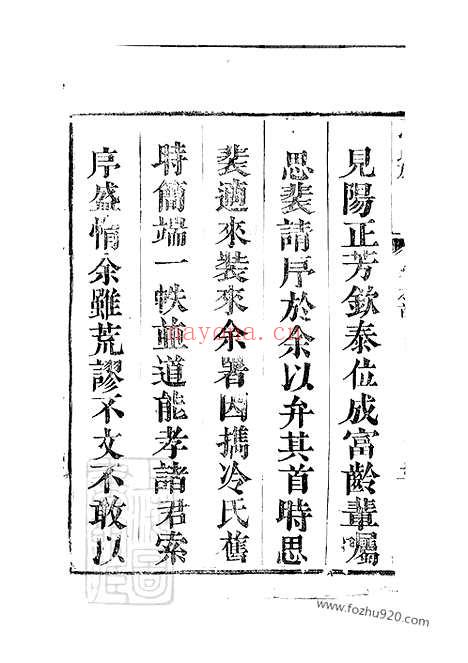 見陽正芳欽泰位成富齡輩囑
思裴請序於余以弁其首時思
裴適來裝來余署因攜冷氏舊
時簡端一帙並道能孝諸君索
序盛情余雖荒謬不文不敢以
nayona.cn
www.fozhu920.com